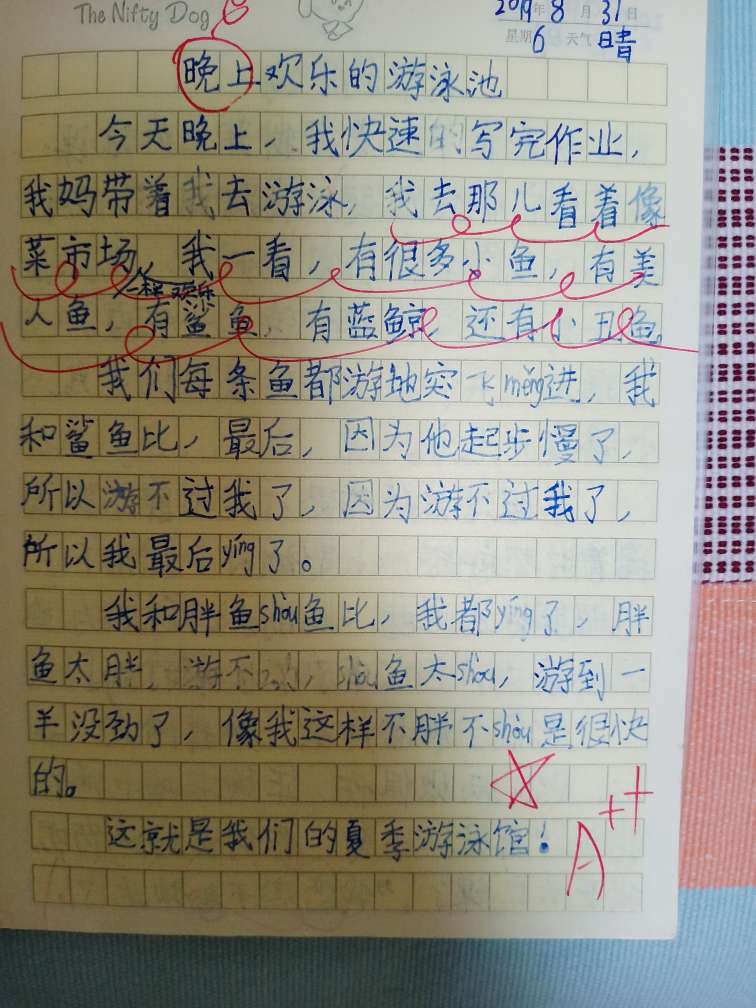 The Nifty Dog
2019年8月31日
星期6 天气晴
晚上欢乐的游泳池
今天晚上，我快速的写完作业，
我妈带着我去游泳，我去那儿看着像
菜市场，我一看，有很多小鱼，有美
人鱼，有鲨鱼，有蓝鲸，还有小丑鱼，
我们每条鱼都游地突飞měng进，我
和鲨鱼比，最后，因为他起步慢了，
所以游不过我了，因为游不过我了，
所以我最后yíng了。
我和胖鱼shòu鱼比，我都yíng了，胖
鱼太胖，游不动，shòu鱼太shòu，游到一
半没劲了，像我这样不胖不shòu是很快
的。
这就是我们的夏季游泳馆！
A++